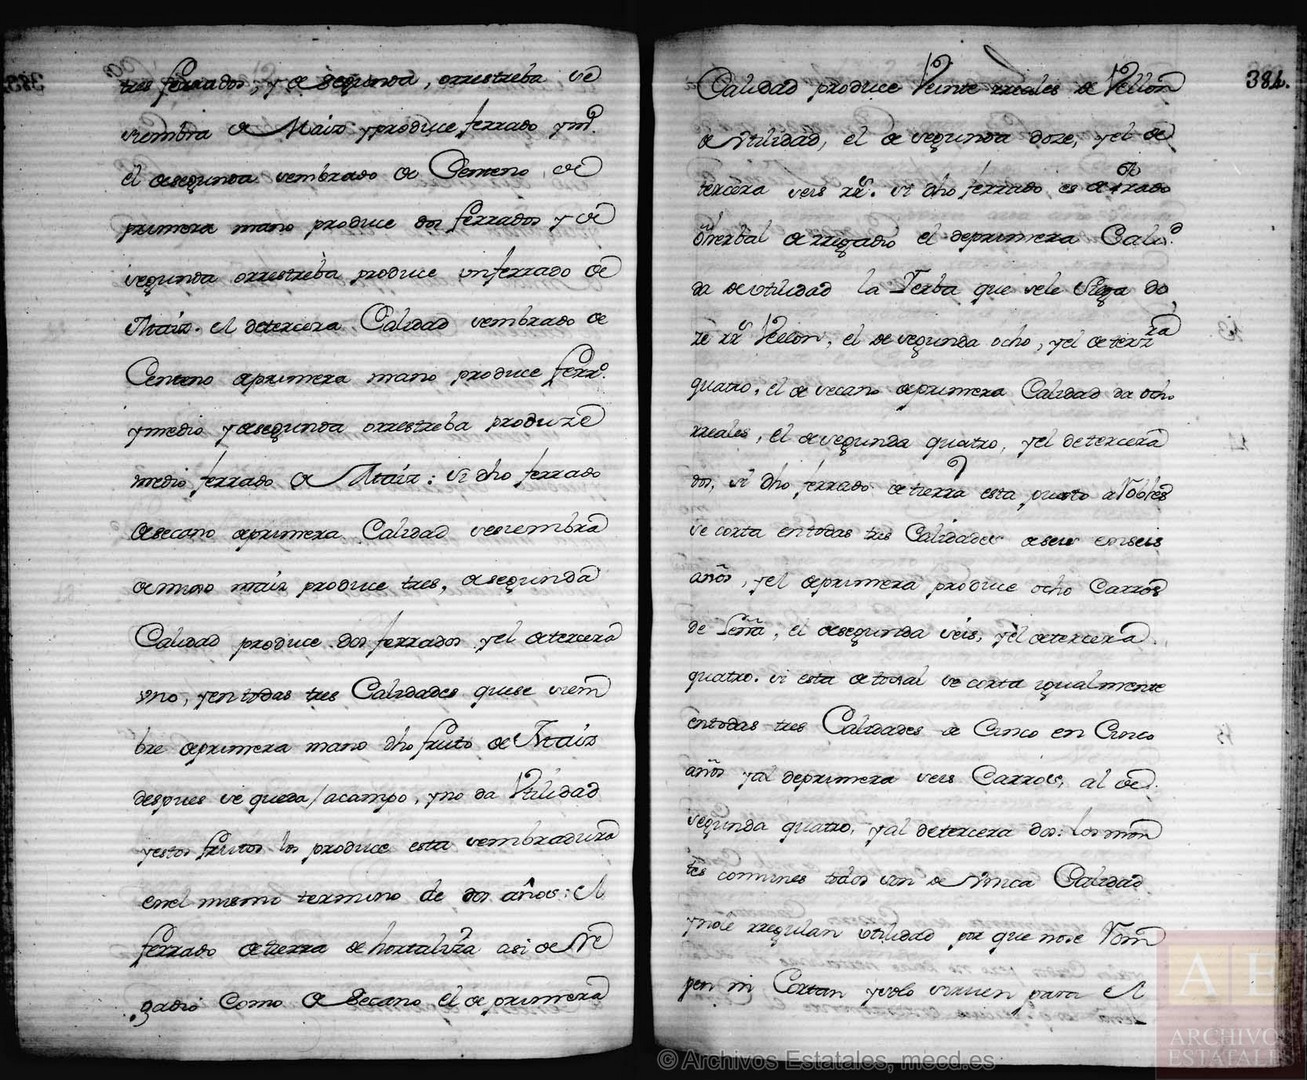 tres ferrados, y a segunda, o rrestreba se
siembra de Maiz y produce ferrado y mº.
el de segunda sembrado de Centeno, de
primera mano produce dos ferrados y de
segunda o rrestreba produce un ferrado de
Maiz. el de tercera Calidad sembrado de
Centeno a primera mano produce ferrº.
y medio y a segunda o rrestreba produze
medio ferrado de Maiz: si dho ferrado
de secano a primera Calidad se siembra
de mijo maiz produce tres, a segunda
Calidad produce dos ferrados y el de tercera
uno, y en todas tres Calidades que se siem
bre a primera mano dho fruto de Maiz
despues se queda acampo, y no da Utilidad
y estos frutos los produce esta sembradura
en el mismo termino de dos años: el
ferrado de tierra de hortaliza asi de Re
gadio Como de Secano el de primera
384.
Calidad produce Veinte rreales de Vellon
de utilidad, el de segunda doze, y el de
tercera seis rrˢ. si dho ferrado es de Prado
verbal de rregadio el de primera Calid
da de utilidad la Yerba que se le Siega do
ze rrˢ Vellon, el de segunda ocho, y el de terzra
quatro, el de secano a primera Calidad da ocho
rreales, el de segunda quatro, y el de tercera
dos, si dho ferrado de tierra esta puesto a Robles
se corta en todas tres Calidades de seis en seis
años, y el de primera produce ocho Carros
de Leña, el de segunda seis, y el de tercera
quatro. si esta de toxal se corta igualmente
en todas tres Calidades de Cinco en Cinco
años y al de primera seis Carros, al de
segunda quatro, y al de tercera dos: los mon
tes comunes todos son de Unica Calidad
y no le rregulan utilidad por que no se Rom
pen ni Cortan y solo sirven para el
© Archivos Estatales, mecd.es
A E
ARCHIVOS
ESTATALES